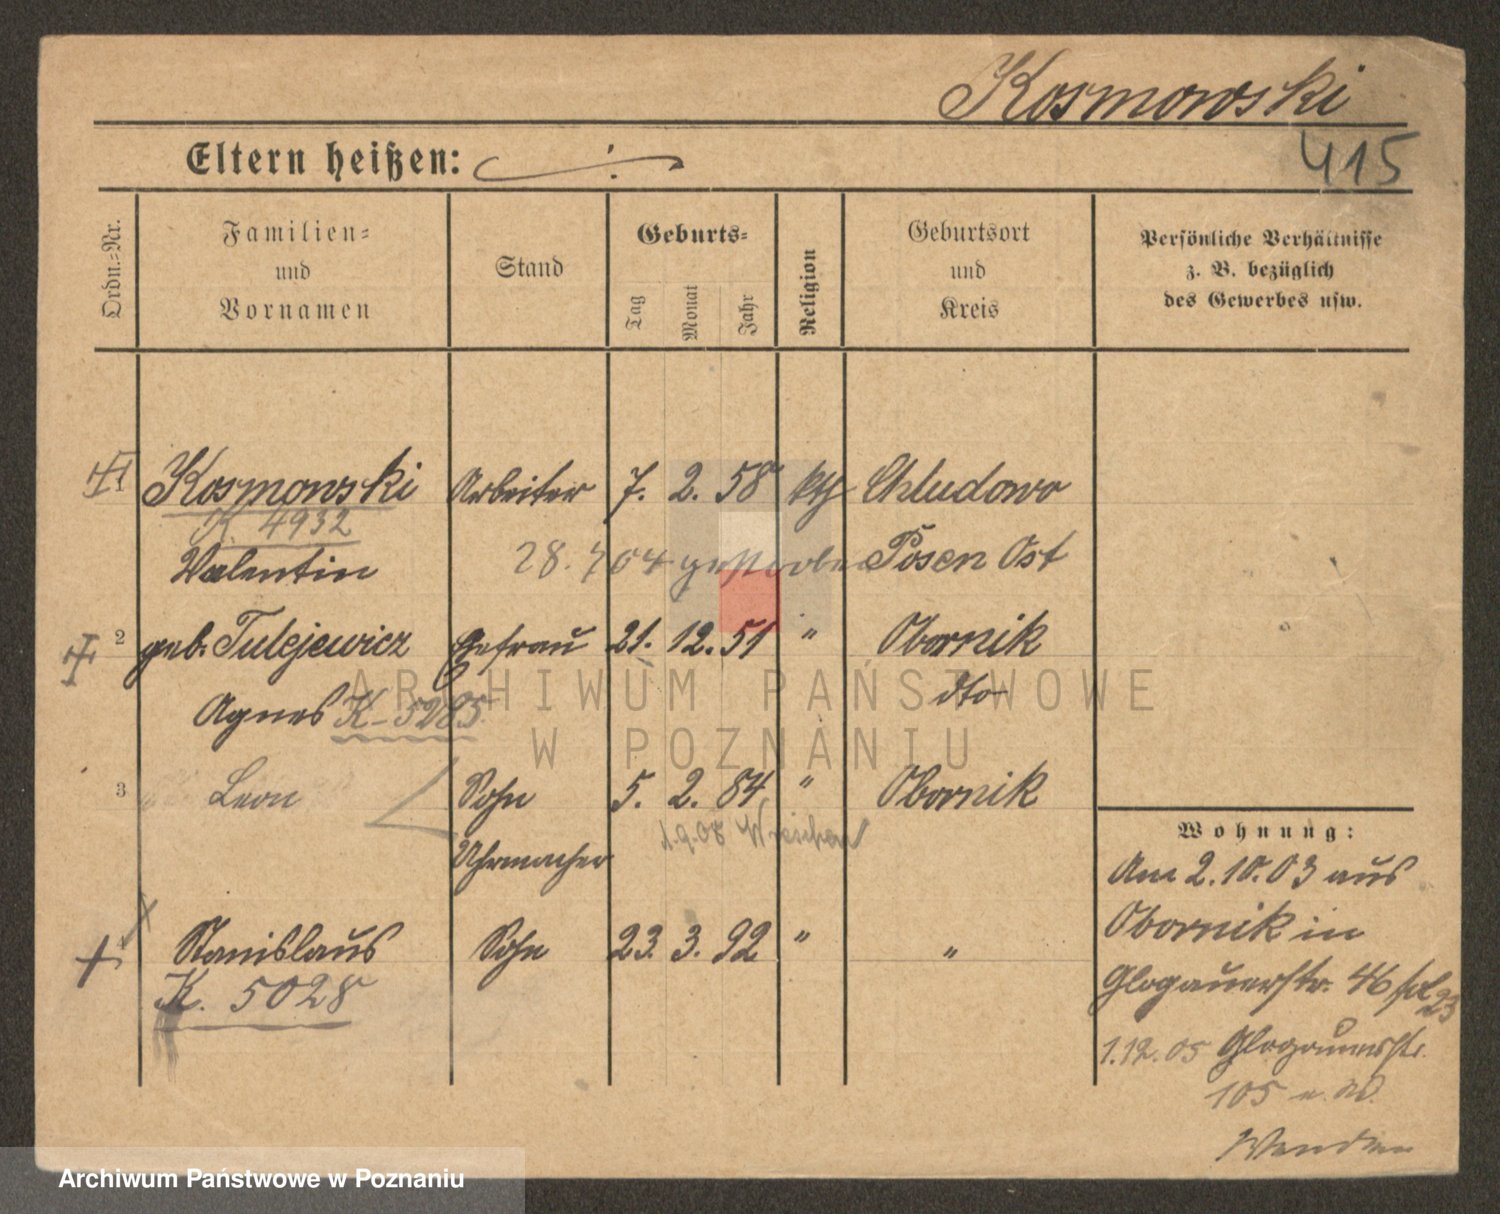 Kosmowski
415
Eltern heißen:
Ordn.-Nr.
Familien-
und
Vornamen
Stand
Geburts-
Tag
Monat
Jahr
Religion
Geburtsort
und
Kreis
Persönliche Verhältnisse
z. B. bezüglich
des Gewerbes usw.
1 Kosmowski Arbeiter 7. 2. 58 kth Chludowo
K. 4932
Valentin 28.7 04 gestorben Posen Ost
2 geb. Tulejewicz Ehefrau 21. 12. 51 " Obornik
Agnes K-5285 dto
3 Leon Sohn 5. 2. 84 " Obornik
1.9.08 Wreschen
Uhrmacher
4 Stanislaus Sohn 23. 3. 92 " "
K. 5028
Wohnung:
Am 2.10.03 aus
Obornik in
Glogauerstr. 46
1.12.05 Glogauerstr.
105
Wenden
ARCHIWUM PAŃSTWOWE
W POZNANIU
Archiwum Państwowe w Poznaniu